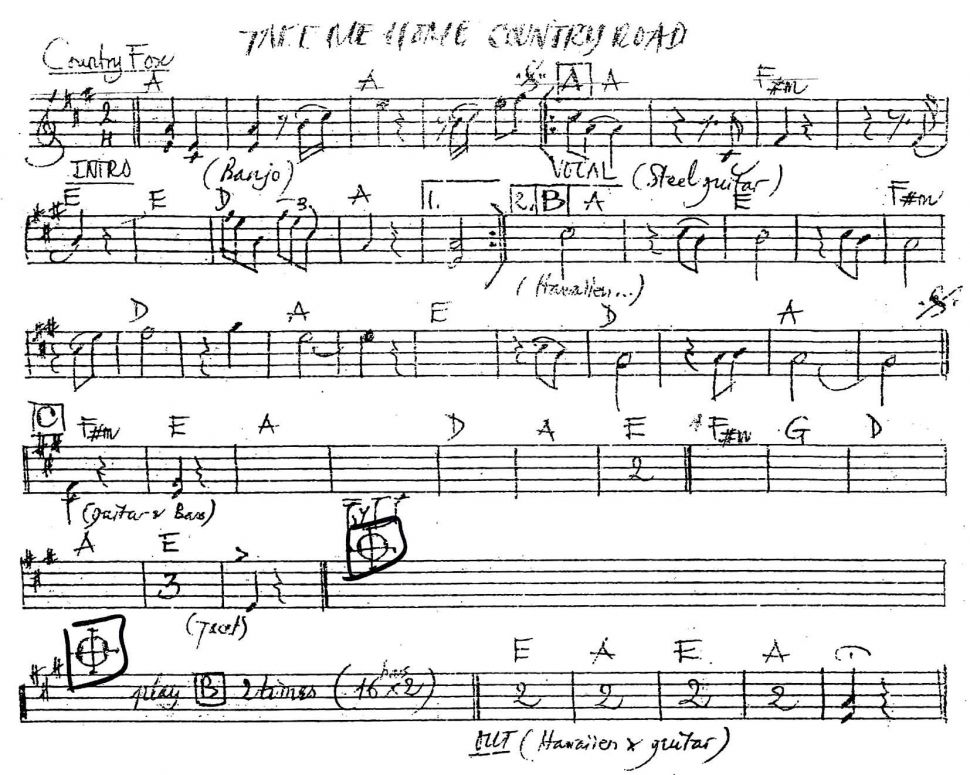 TAKE ME HOME COUNTRY ROAD
Country Fox
A A A A F#m
2 4
INTRO (Banjo) VOCAL (Steel guitar)
E E D 3 A 1. 2. B A E F#m
(Hawaiien...)
D A E D A
C F#m E A D A E F#m G D
2
(guitar & Bass)
A E
3
(Tacet)
E A E A
play B 2 times (16 bars x 2) 2 2 2 2
OUT (Hawaiien & guitar)